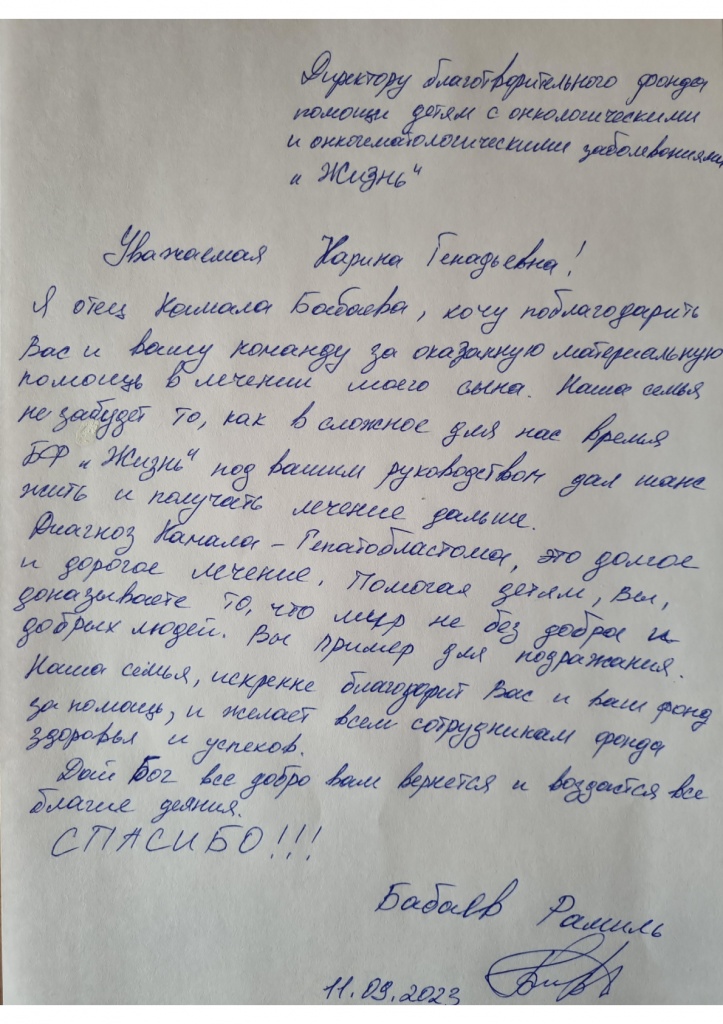 Директору благотворительного фонда
помощи детям с онкологическими
и онкогематологическими заболеваниями
„Жизнь“
Уважаемая Карина Генадьевна!
Я отец Камала Бабаева, хочу поблагодарить
Вас и вашу команду за оказанную материальную
помощь в лечении моего сына. Наша семья
не забудет то, как в сложное для нас время
БФ „Жизнь“ под вашим руководством дал шанс
жить и получать лечение дальше.
Диагноз Камала – Гепатобластома, это долгое
и дорогое лечение. Помогая детям, Вы,
доказываете то, что мир не без добра и
добрых людей. Вы пример для подражания.
Наша семья, искренне благодарит Вас и ваш фонд
за помощь, и желает всем сотрудникам фонда
здоровья и успехов.
Дай Бог все добро вам вернется и воздастся все
благие деяния.
СПАСИБО!!!
Бабаев Рамиль
11.09.2023